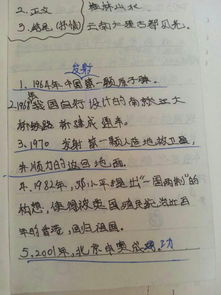 2. 正文 桂林山水
3. 结尾(抒情) 云南大理古都风光
发射
1. 1964年中国第一颗原子弹。
2. 1968我国自行设计的南京长江大
桥铁路桥建成通车。
3. 1970 发射第一颗人造地球卫星,
并顺利的返回地面。
4. 1982年,邓小平提出“一国两制”的
构想,使得被英国殖民统治近百
年的香港,回归祖国。
5. 2001年,北京申奥成功